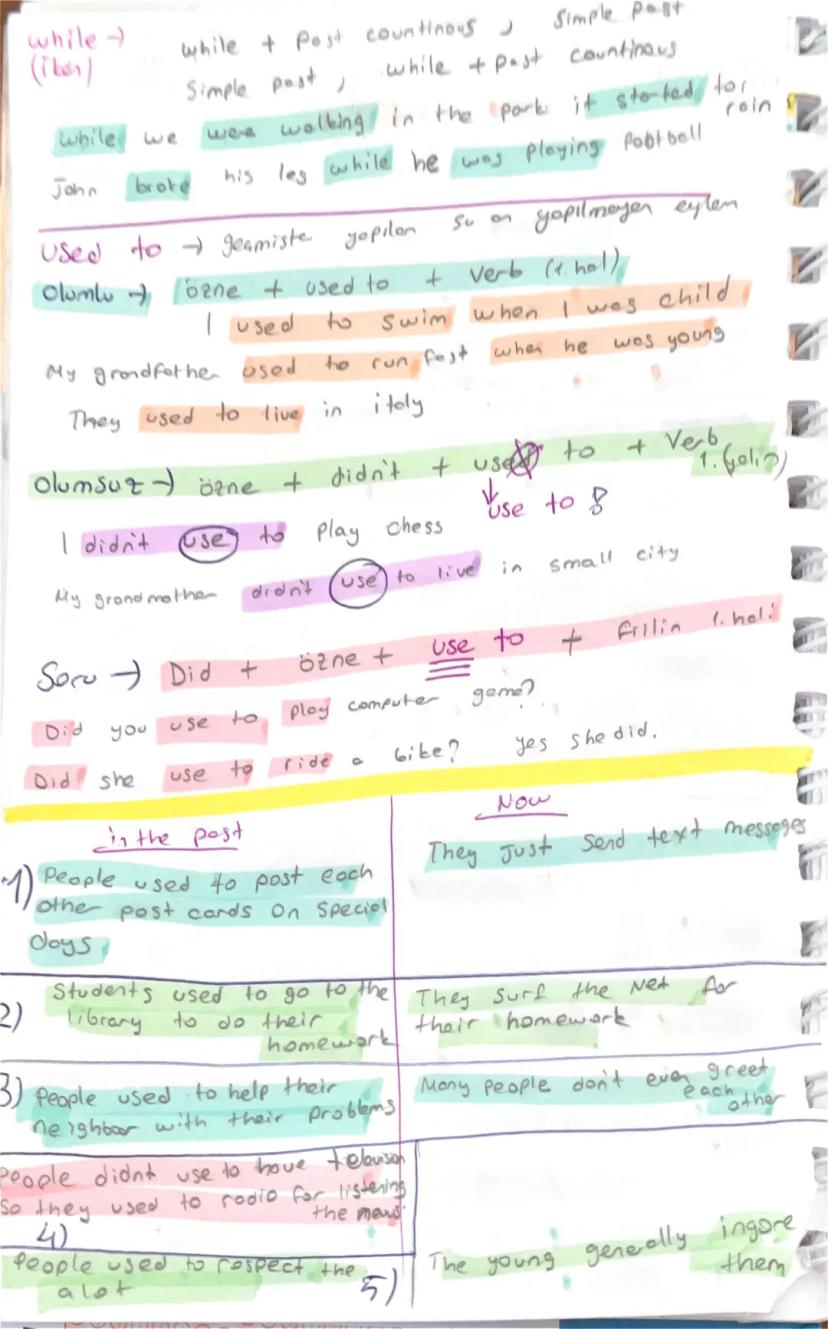 while → while + past countinous, simple past
(iken) Simple past, while + past countinous
while we were walking in the park it started to rain
John brote his leg while he was playing football
used to → geçmişte yapılan şu an yapılmayan eylem
Olumlu → özne + used to + Verb (1. hal)
I used to swim when I was child
My grandfather used to run fast when he was young
They used to live in italy
Olumsuz → özne + didn't + used to + Verb
1. (yalın)
↓ use to
I didn't use to play chess
My grandmother didn't use to live in small city
Soru → Did + özne + use to + fiilin 1. hali
Did you use to play computer game?
Did she use to ride a bike? yes she did.
in the past
Now
1) People used to post each
other post cards on special
days
They just send text messages
2) Students used to go to the
library to do their
homework
They surf the Net for
their homework
3) People used to help their
neighbor with their problems
Many people don't even greet
each
other
People didnt use to have telavison
so they used to radio for listening
the news
4)
People used to respect the
a lot 5)
The young generally ingore
them